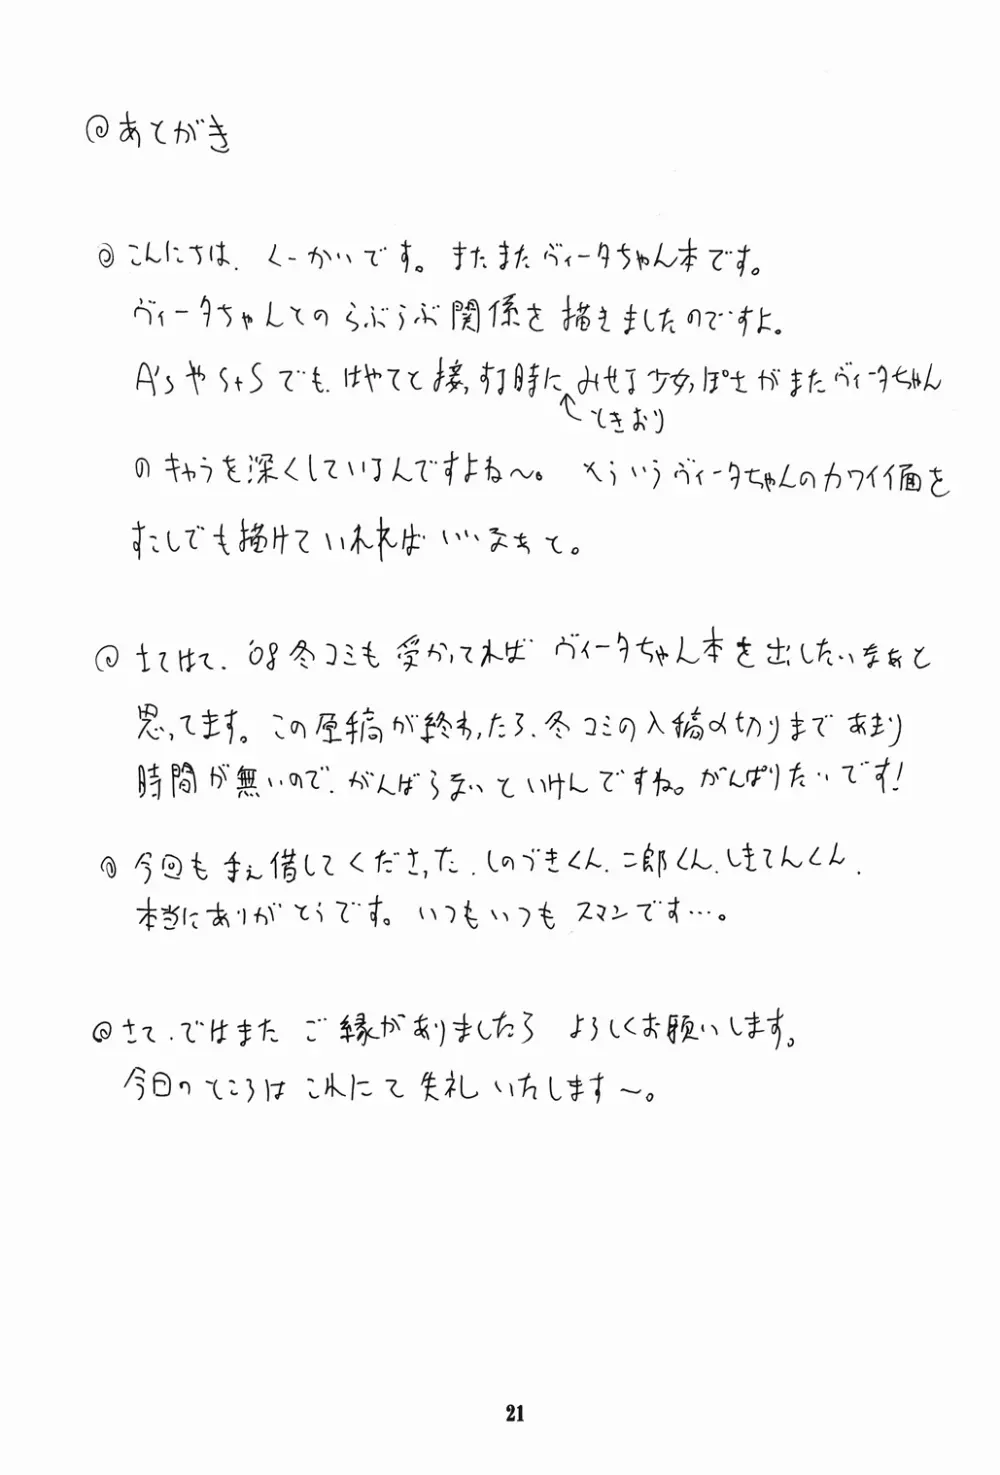 @あとがき
@こんにちは、くーかいです。またまたヴィータちゃん本です。
ヴィータちゃんとのらぶらぶ関係を描きましたのですよ。
A'sやStSでも、はやてと接する時にみせる少女っぽさがまたヴィータちゃん
↑ときおり
のキャラを深くしているんですよね〜。そういうヴィータちゃんのカワイイ面を
すこしでも描けていれればいいなぁと。
@さてはて、'08冬コミも受かってればヴィータちゃん本を出したいなぁと
思ってます。この原稿が終わったら、冬コミの入稿〆切りまであまり
時間が無いので、がんばらないといけんですね。がんばりたいです!
@今回も手ぇ借してくださった、しのづきくん、二郎くん、しきてんくん、
本当にありがとうです。いつもいつもスマンです…。
@さて、ではまたご縁がありましたらよろしくお願いします。
今日のところはこれにて失礼いたします〜。
21